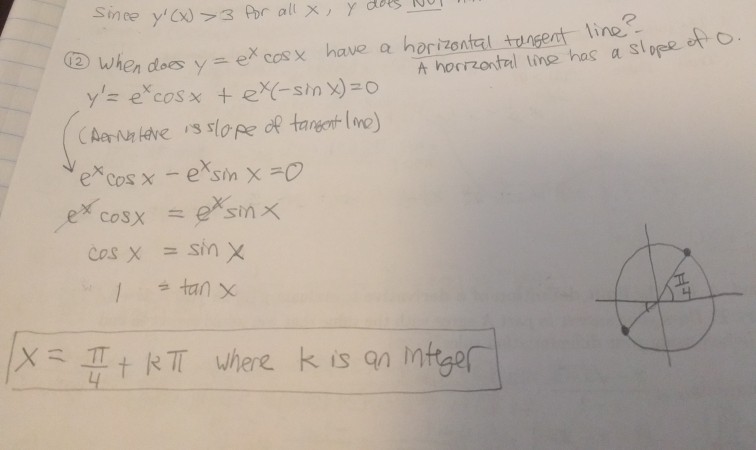 Since y'(x) > 3 for all x, y does NOT
⑫ When does y = eˣ cos x have a horizontal tangent line?
A horizontal line has a slope of 0.
y' = eˣ cos x + eˣ(-sin x) = 0
(Derivative is slope of tangent line)
eˣ cos x - eˣ sin x = 0
eˣ cos x = eˣ sin x
cos x = sin x
1 = tan x
π/4
x = π/4 + kπ where k is an integer